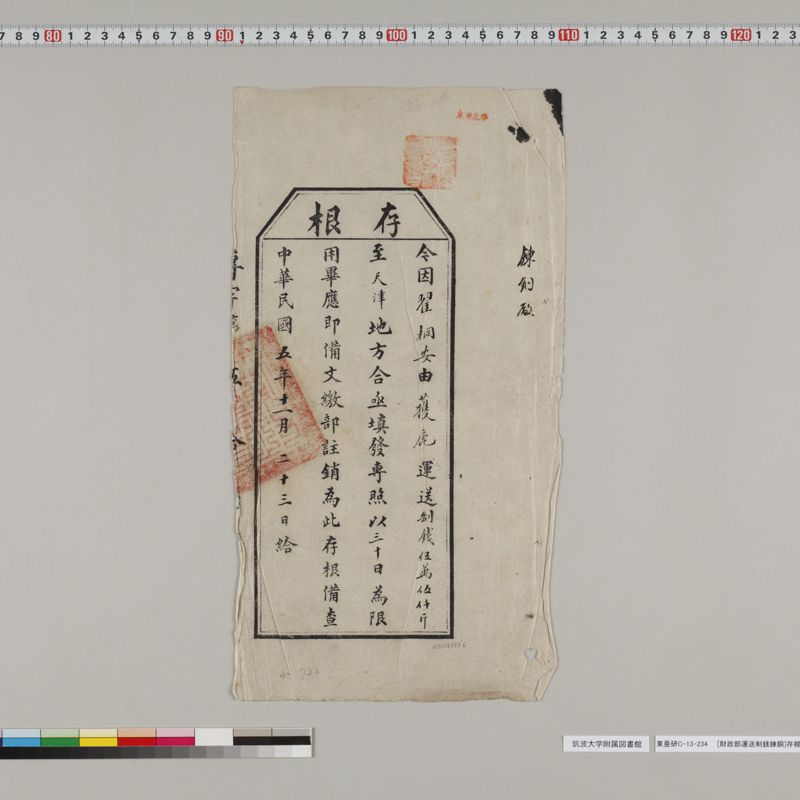 7 8 9 80 1 2 3 4 5 6 7 8 9 90 1 2 3 4 5 6 7 8 9 100 1 2 3 4 5 6 7 8 9 110 1 2 3 4 5 6 7 8 9 120 1 2 3
鍊銅啟
存根
令因翟桐安由獲鹿運送制錢伍萬伍仟斤
至天津地方合亟填發專照以三十日為限
用畢應即備文繳部註銷為此存根備查
中華民國五年十一月二十三日給
筑波大学附属図書館
東亜研C-13-234 [財政部運送制銭錬銅]存根